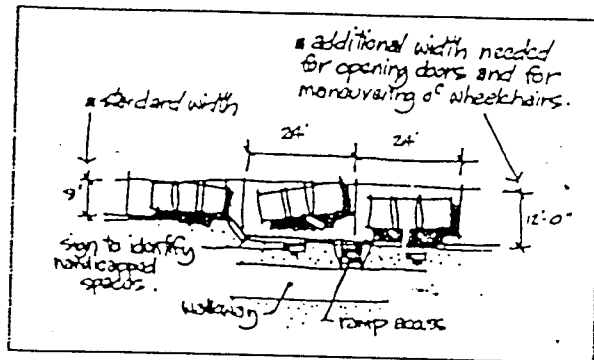 additional width needed
for opening doors and for
manouvering of wheelchairs.
standard width
24'
24'
9'
12'-0"
sign to identify
handicapped
spaces.
walkway
ramp access